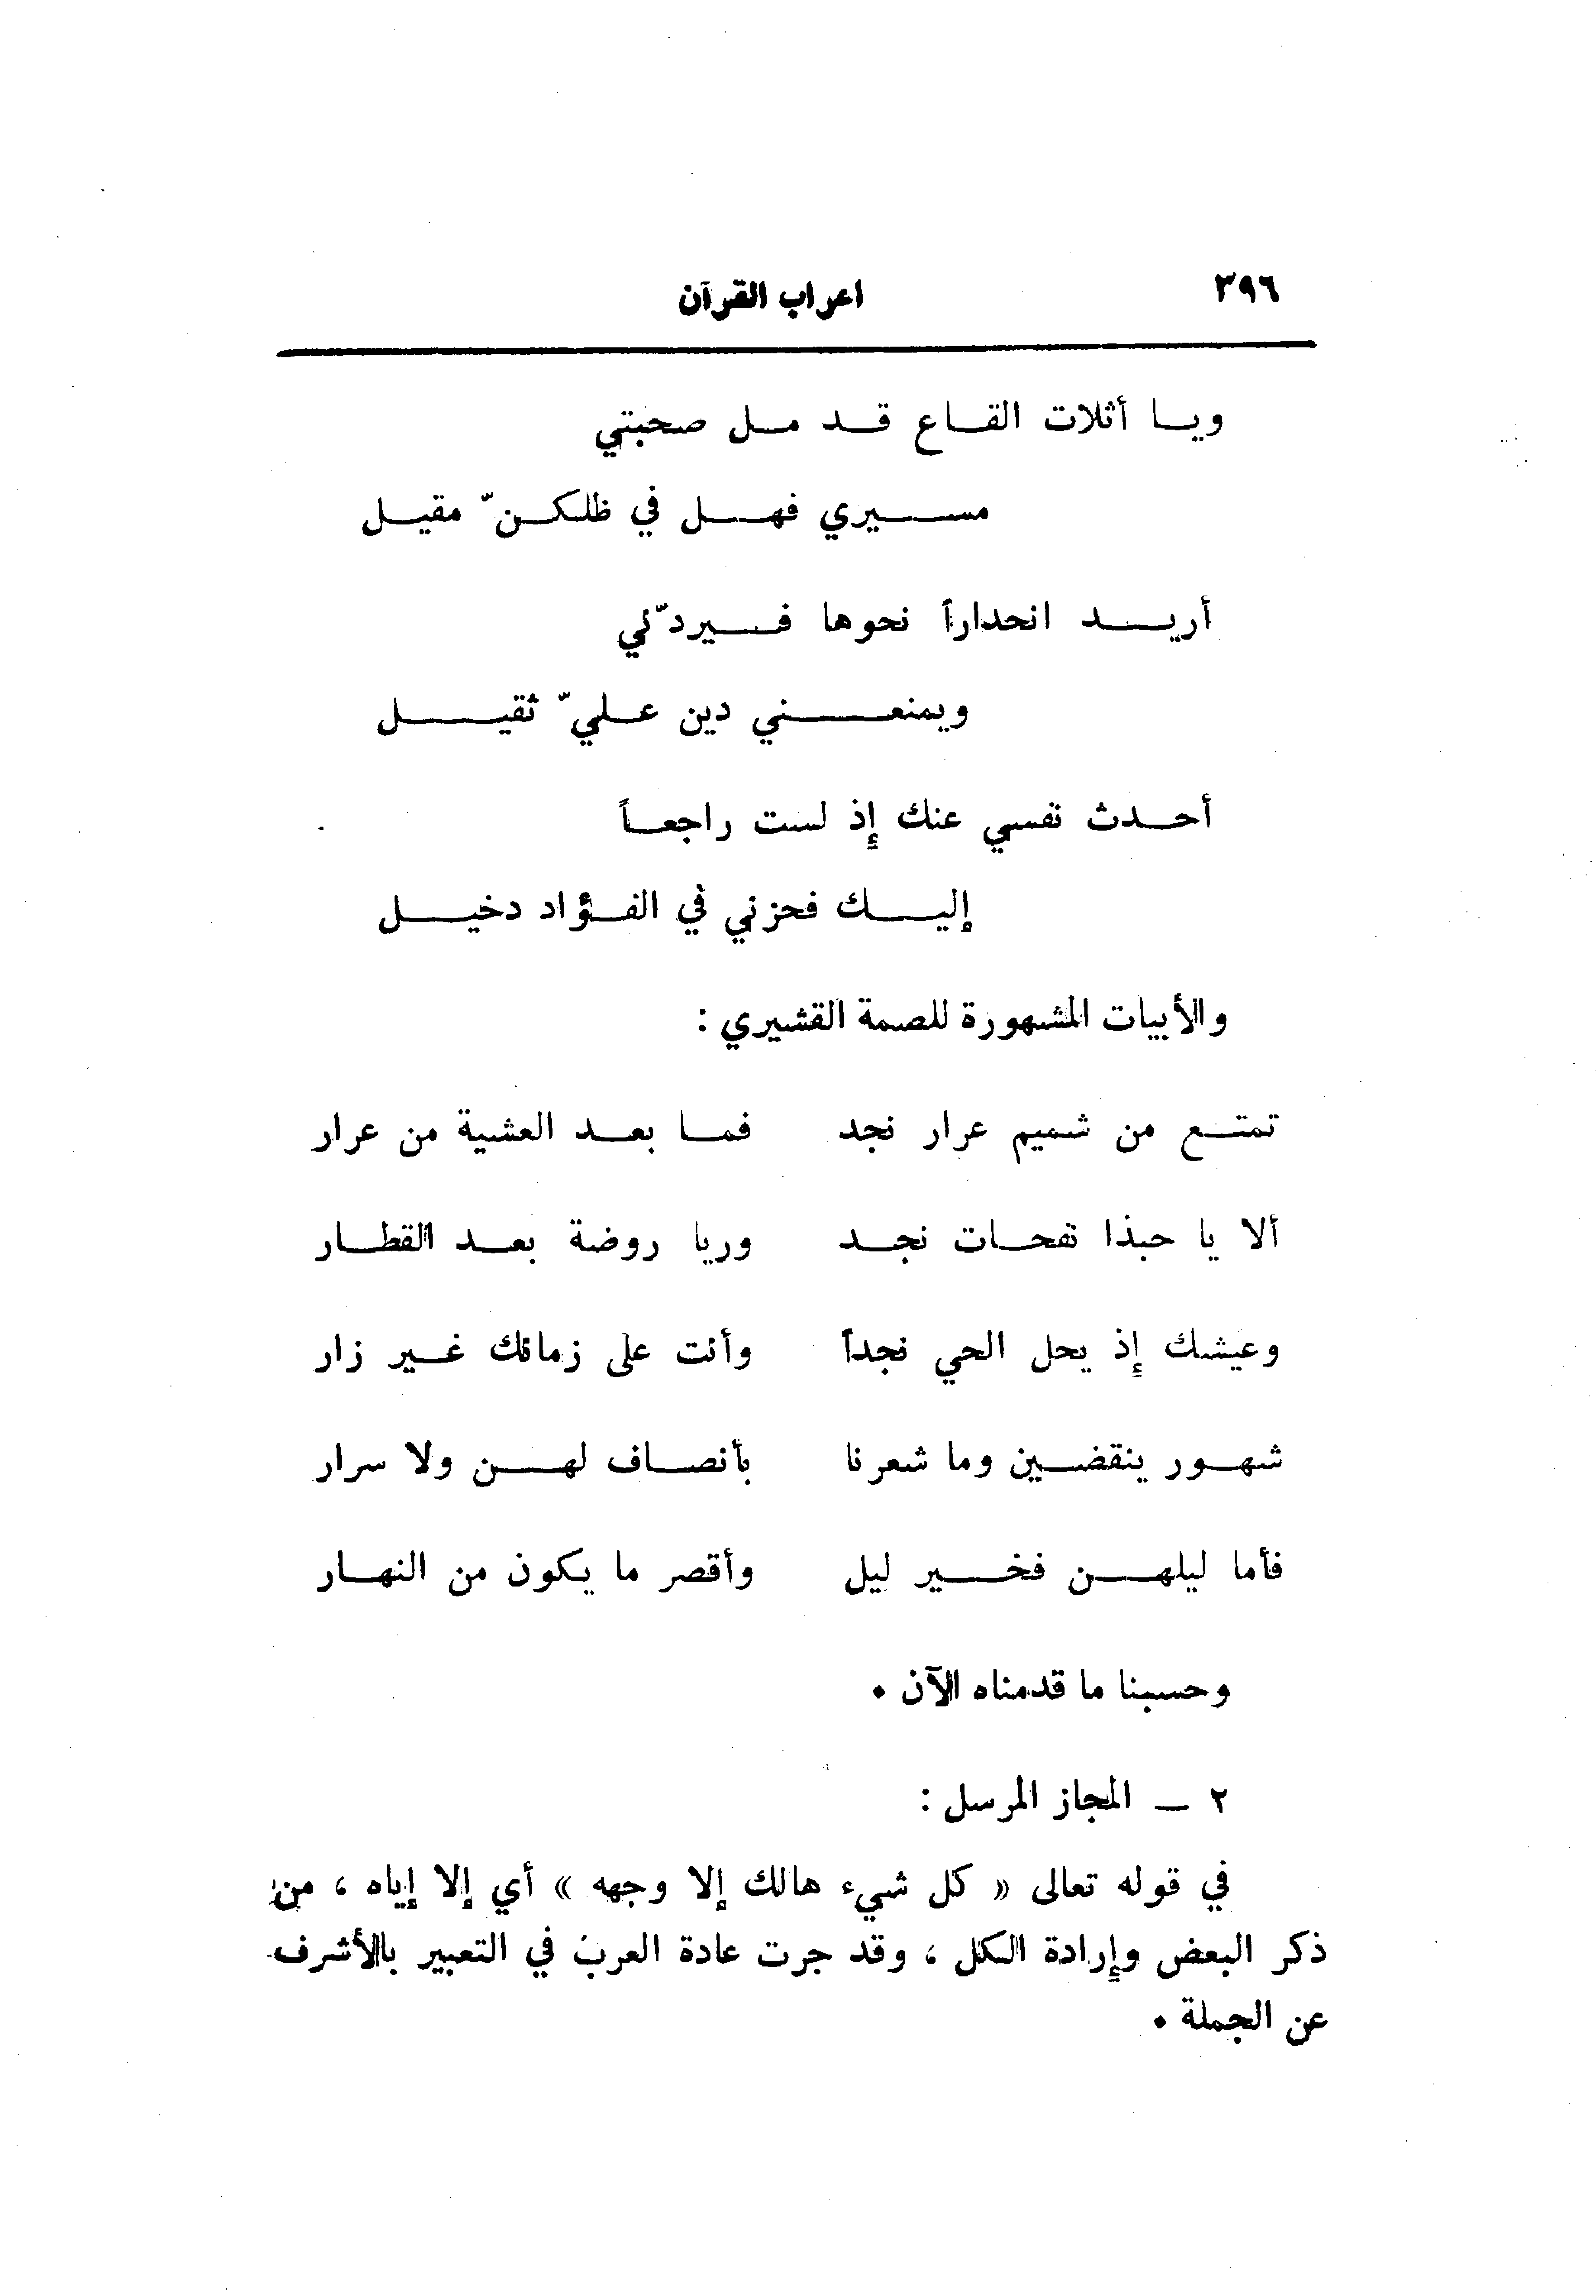 ٣٩٦ اعراب القرآن
ويا أثلات القاع قد مل صحبتي
مسيري فهل في ظلكنّ مقيل
أريد انحداراً نحوها فيردّني
ويمنعني دين عليّ ثقيل
أحدث نفسي عنك إذ لست راجعاً
إليك فحزني في الفؤاد دخيل
والأبيات المشهورة للصمة القشيري :
تمتع من شميم عرار نجد فما بعد العشية من عرار
ألا يا حبذا نفحات نجد وريا روضة بعد القطار
وعيشك إذ يحل الحي نجداً وأنت على زمانك غير زار
شهور ينقضين وما شعرنا بأنصاف لهن ولا سرار
فأما ليلهن فخير ليل وأقصر ما يكون من النهار
وحسبنا ما قدمناه الآن ٠
٢ ـ المجاز المرسل :
في قوله تعالى « كل شيء هالك إلا وجهه » أي إلا إياه ، من
ذكر البعض وإرادة الكل ، وقد جرت عادة العرب في التعبير بالأشرف
عن الجملة ٠